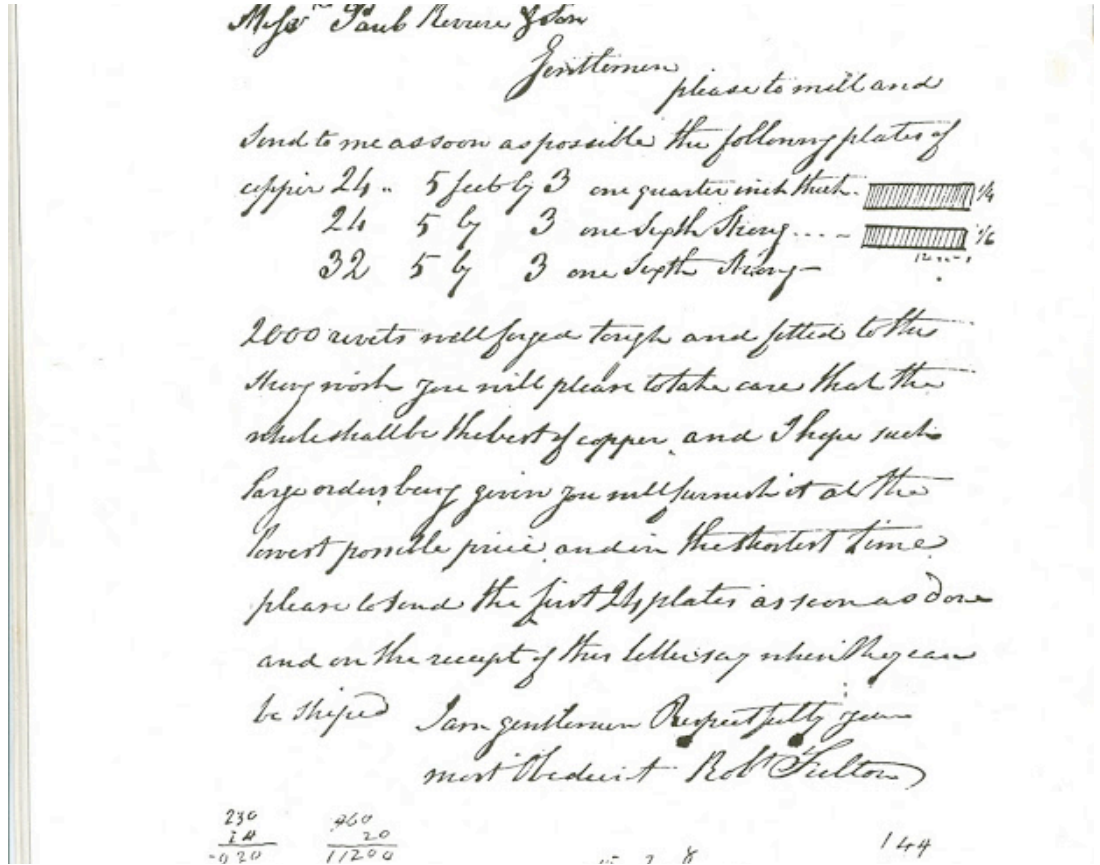 Messrs Paul Revere & Son
Gentlemen
please to mill and
Send to me as soon as possible the following plates of
copper 24 .. 5 feet by 3 one quarter inch thick. 1/4
24 5 by 3 one Sixth Strong .... 1/6
32 5 by 3 one Sixth Strong –
2000 rivets well forged tough and fitted to this
strong work you will please to take care that the
whole shall be the best of copper and I hope such
large orders being given you will furnish it at the
lowest possible price and in the shortest time
please to send the first 24 plates as soon as done
and on the receipt of this letter say when they can
be shiped I am gentlemen Respectfully your
most Obedient Robt Fulton
230 960
14 20
920 11200
144